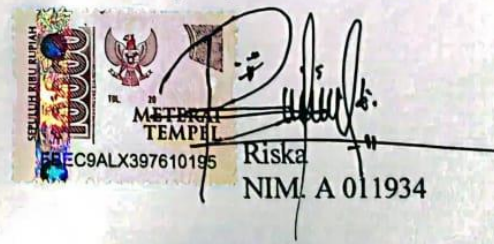 SEPULUH RIBU RUPIAH
10000
TGL. 20
METERAI
TEMPEL
EC9ALX397610195
Riska
NIM. A 011934